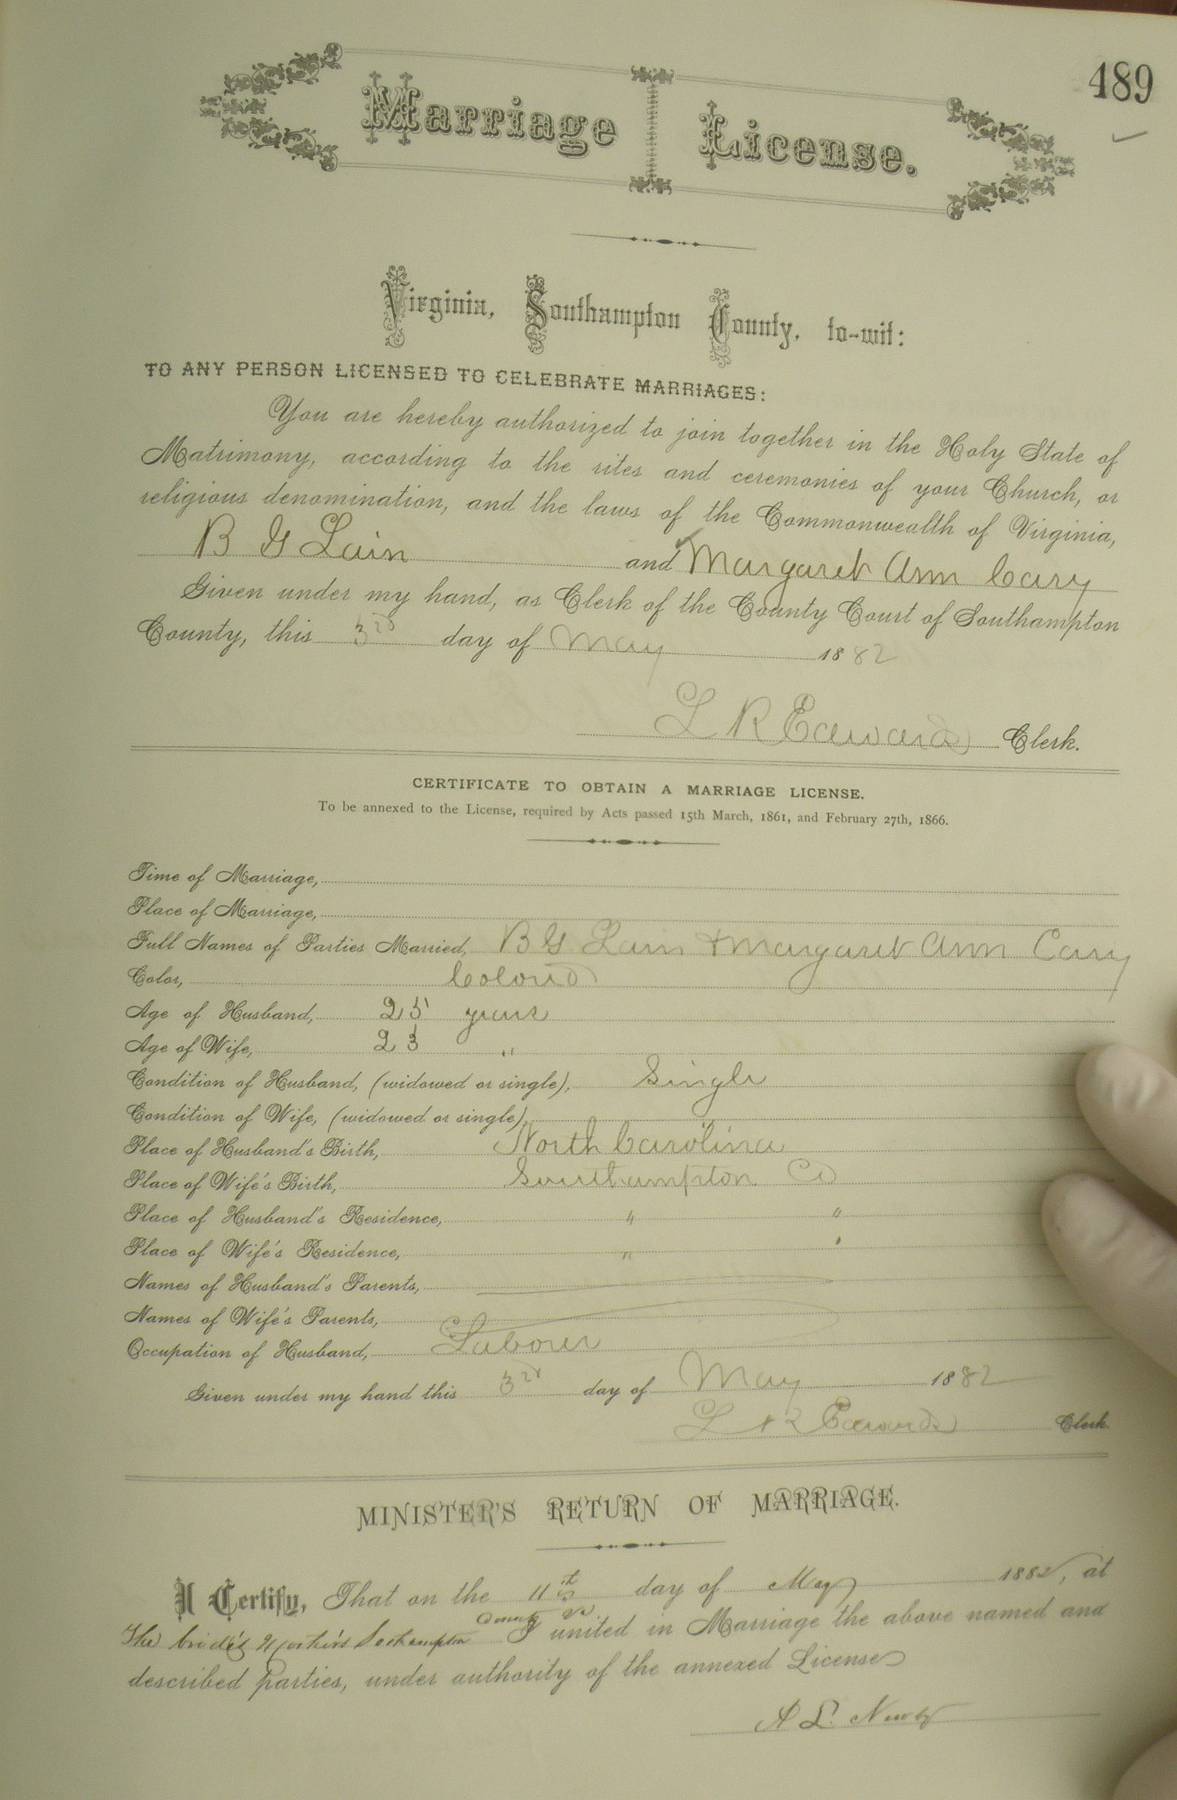 489
Marriage License.
Virginia, Southampton County, to-wit:
TO ANY PERSON LICENSED TO CELEBRATE MARRIAGES:
You are hereby authorized to join together in the Holy State of
Matrimony, according to the rites and ceremonies of your Church, or
religious denomination, and the laws of the Commonwealth of Virginia,
B G Lain and Margaret Ann Cary
Given under my hand, as Clerk of the County Court of Southampton
County, this 3rd day of May 1882
L R Edwards Clerk.
CERTIFICATE TO OBTAIN A MARRIAGE LICENSE.
To be annexed to the License, required by Acts passed 15th March, 1861, and February 27th, 1866.
Time of Marriage,
Place of Marriage,
Full Names of Parties Married, B G Lain & Margaret Ann Cary
Color, Colored
Age of Husband, 25 years
Age of Wife, 23 "
Condition of Husband, (widowed or single), Single
Condition of Wife, (widowed or single), "
Place of Husband's Birth, North Carolina
Place of Wife's Birth, Southampton Co
Place of Husband's Residence, " "
Place of Wife's Residence, " "
Names of Husband's Parents,
Names of Wife's Parents,
Occupation of Husband, Laborer
Given under my hand this 3rd day of May 1882
L R Edwards Clerk.
MINISTER'S RETURN OF MARRIAGE.
I Certify, That on the 11th day of May 1882, at
The bride's Mother's Southampton County Va I united in Marriage the above named and
described parties, under authority of the annexed License
A L.